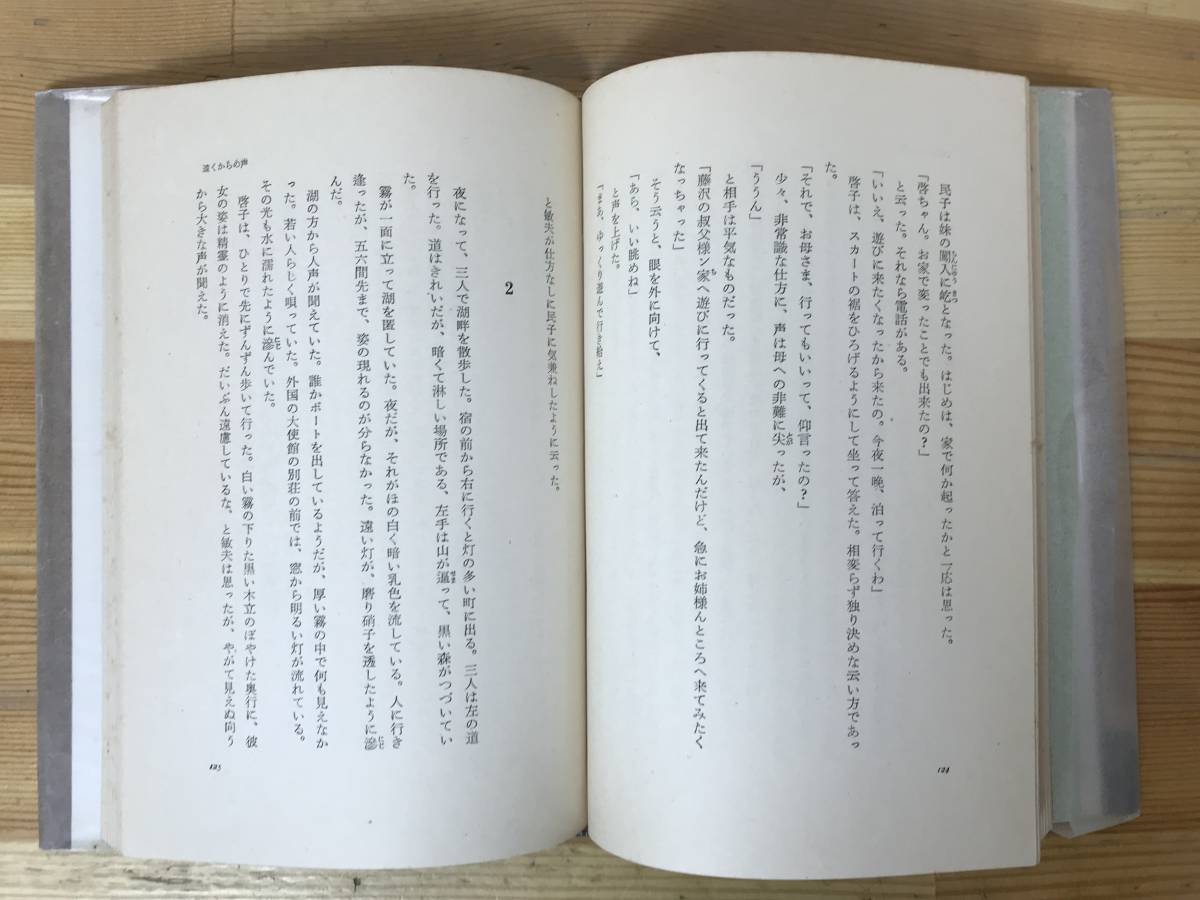 民子は妹の闖入に屹となった。はじめは、家で何か起ったかと一応は思った。
「啓ちゃん。お家で変ったことでも出来たの？」
と云った。それなら電話がある。
「いいえ、遊びに来たくなったから来たの。今夜一晩、泊って行くわ」
啓子は、スカートの裾をひろげるようにして坐って答えた。相変らず独り決めな云い方であっ
た。
「それで、お母さま、行ってもいいって、仰言ったの？」
少々、非常識な仕方に、声は母への非難に尖ったが、
「ううん」
と相手は平気なものだった。
「藤沢の叔父様ン家へ遊びに行ってくると出て来たんだけど、急にお姉様んところへ来てみたく
なっちゃった」
そう云うと、眼を外に向けて、
「あら、いい眺めね」
と声を上げた。
「まあ、ゆっくり遊んで行き給え」
124
と敏夫が仕方なしに民子に気兼ねしたように云った。
2
夜になって、三人で湖畔を散歩した。宿の前から右に行くと灯の多い町に出る。三人は左の道
を行った。道はきれいだが、暗くて淋しい場所である、左手は山が逼って、黒い森がつづいてい
た。
霧が一面に立って湖を匿していた。夜だが、それがほの白く暗い乳色を流している。人に行き
逢ったが、五六間先まで、姿の現れるのが分らなかった。遠い灯が、磨り硝子を透したように滲
んだ。
湖の方から人声が聞えていた。誰かボートを出しているようだが、厚い霧の中で何も見えなか
った。若い人らしく唄っていた。外国の大使館の別荘の前では、窓から明るい灯が流れている。
その光も水に濡れたように滲んでいた。
啓子は、ひとりで先にずんずん歩いて行った。白い霧の下りた黒い木立のぼやけた奥行に、彼
女の姿は精霊のように消えた。だいぶん遠慮しているな、と敏夫は思ったが、やがて見えぬ向う
から大きな声が聞えた。
遠くからの声
125